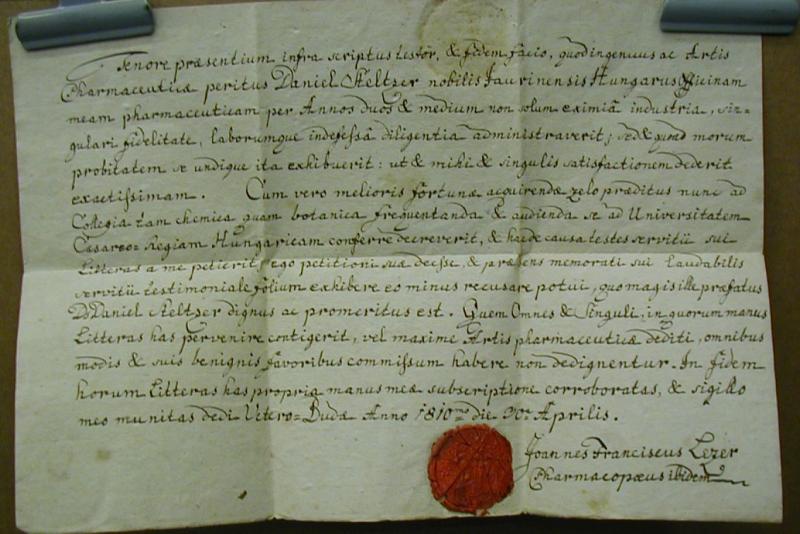 Tenore præsentium infra scriptus testor, & fidem facio, quod ingenuus ac Artis
Pharmaceuticæ peritus Daniel Steltzer nobilis Jaurinensis Hungarus Officinam
meam pharmaceuticam per Annos duos & medium non solum eximiâ industria, sin=
gulari fidelitate, laborumque indefessâ diligentia administraverit; sed & quoad morum
probitatem se undique ita exhibuerit: ut & mihi & singulis satisfactionem dederit
exactissimam. Cum vero melioris fortunæ acquirendæ zelo præditus nunc ad
Collegia tam chemica quam botanica frequentanda & audienda se ad Universitatem
Cæsareo=Regiam Hungaricam conferre decreverit, & hac de causa testes servitii sui
Litteras a me petierit, ego petitioni suæ deesse, & præsens memorati sui laudabilis
servitii testimoniale folium exhibere eo minus recusare potui, quo magis ille præfatus
D. Daniel Steltzer dignus ac promeritus est. Quem Omnes & Singuli, in quorum manus
Litteras has pervenire contigerit, vel maxime Artis pharmaceuticæ dediti, omnibus
modis & suis benignis favoribus commissum habere non dedignentur. In fidem
horum Litteras has propria manus meæ subscriptione corroboratas, & sigillo
meo munitas dedi Vetero=Budæ Anno 1810mo die 20a Aprilis.
Joannes Franciscus Lezer
Pharmacopæus ibidem